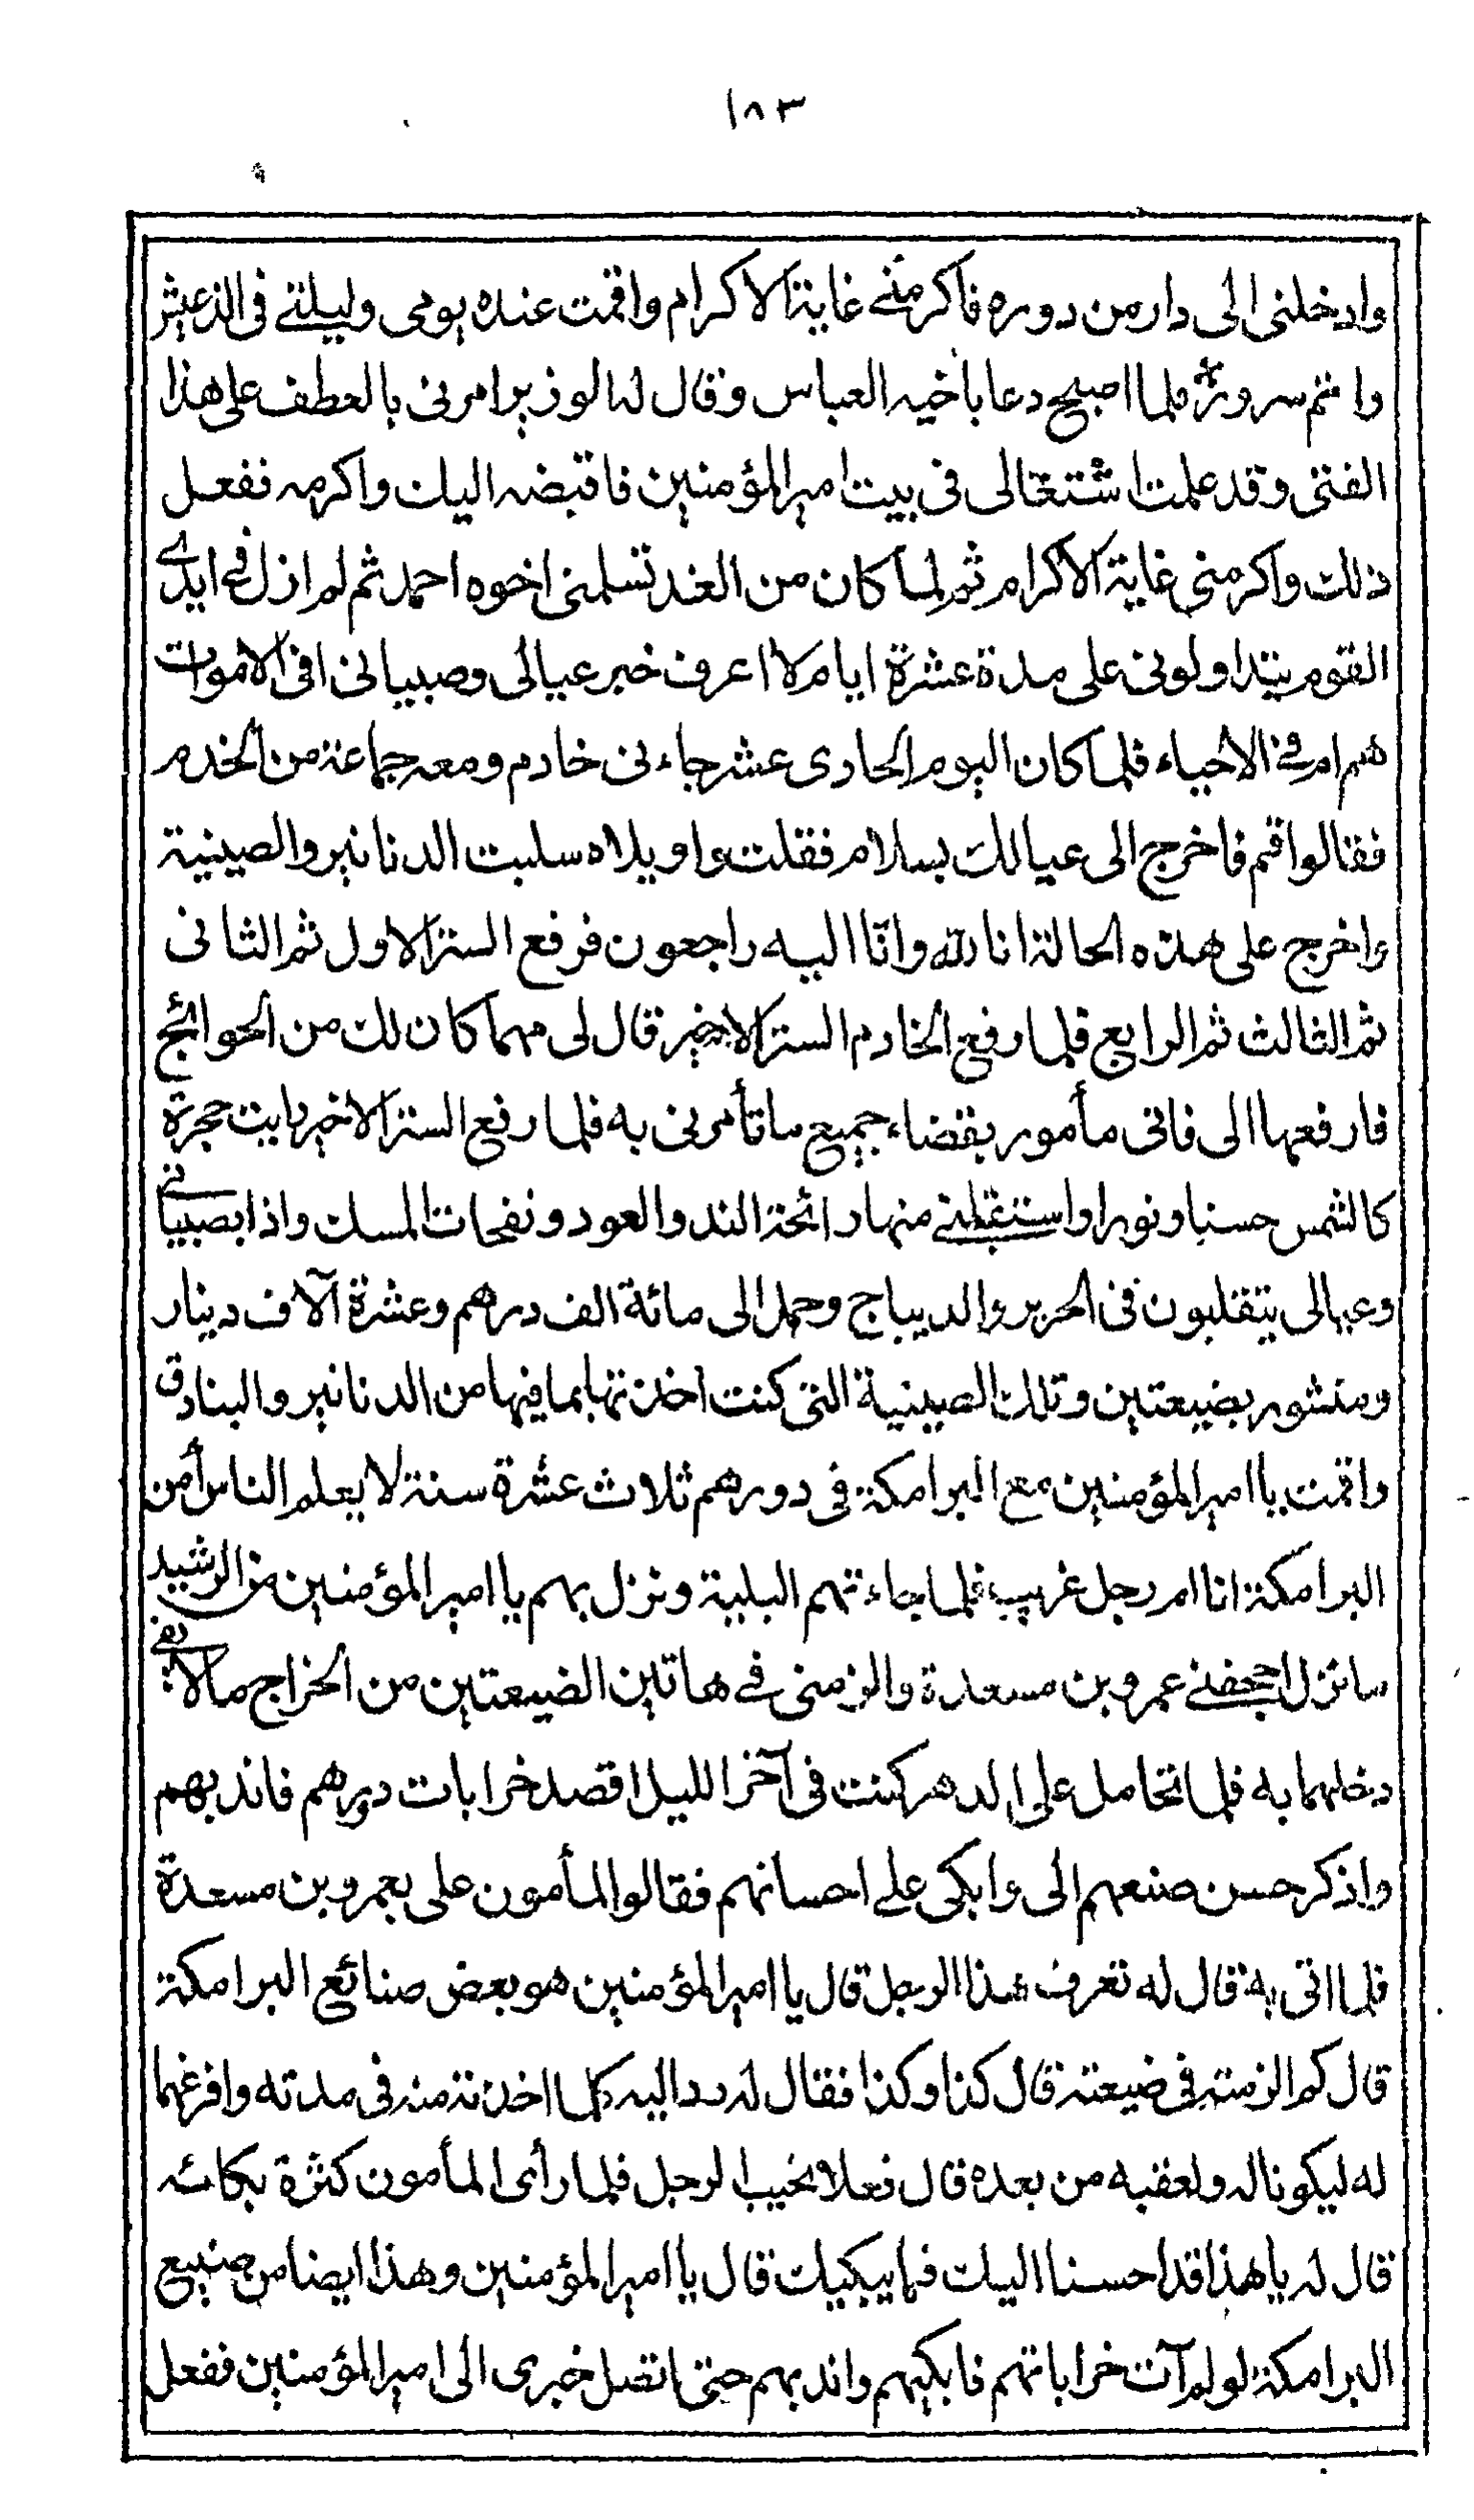 ١٨٣
وادخلنى الى دار من دوره فاكرمنے غاية الاكرام واقمت عنده يومى وليلتے فى الذ عيش
واتم سرور فلما اصبح دعا باخيه العباس وقال له الوزير امرنى بالعطف على هذا
الفتى وقد علمت اشتغالى فى بيت امير المؤمنين فاقبضه اليك واكرمه ففعل
ذلك واكرمنى غاية الاكرام ثم لما كان من الغد تسلمنى اخوه احمد ثم لم ازل فے ايدے
القوم يتداولونى على مدة عشرة ايام لا اعرف خبر عيالى وصبيانى افى الاموات
هم ام فے الاحياء فلما كان اليوم الحادى عشر جاءنى خادم ومعه جماعة من الخدم
فقالوا قم فاخرج الى عيالك بسلام فقلت واويلاه سلبت الدنانير والصينية
واخرج على هذه الحالة انا لله وانا اليه راجعون فرفع الستر الاول ثم الثانى
ثم الثالث ثم الرابع فلما رفع الخادم الستر الاخير قال لى مهما كان لك من الحوائج
فارفعها الى فانى مأمور بقضاء جميع ما تأمرنى به فلما رفع الستر الاخير رايت حجرة
كالشمس حسنا ونورا واستقبلنے منها رائحة الند والعود ونفحات المسك واذا بصبيانے
وعيالى يتقلبون فى الحرير والديباج وحمل الى مائة الف درهم وعشرة آلاف دينار
ومنشور بضيعتين وتلك الصينية التى كنت اخذتها بما فيها من الدنانير والبنادق
واقمت يا امير المؤمنين مع البرامكة فى دورهم ثلاث عشرة سنة لا يعلم الناس أمن
البرامكة انا ام رجل غريب فلما جاءتهم البلية ونزل بهم يا امير المؤمنين من الرشيد
ما نزل اجحفنے عمرو بن مسعدة والزمنى فے هاتين الضيعتين من الخراج ما لا يفے
دخلهما به فلما تحامل على الدهر كنت فى آخر الليل اقصد خرابات دورهم فاندبهم
واذكر حسن صنعهم الى وابكى علے احسانهم فقالوا المأمون على بعمرو بن مسعدة
فلما اتى به قال له تعرف هذا الرجل قال يا امير المؤمنين هو بعض صنائع البرامكة
قال كم الزمته فى ضيعته قال كذا وكذا فقال له رد اليه كلما اخذته منه فى مدته وافرغهما
له ليكونا له ولعقبه من بعده قال فعلا نحيب الرجل فلما رأى المأمون كثرة بكائه
قال له يا هذا قد احسنا اليك فما يبكيك قال يا امير المؤمنين وهذا ايضا من صنيع
البرامكة لو لم آت خراباتهم فابكيهم واندبهم حتى اتصل خبرى الى امير المؤمنين ففعل